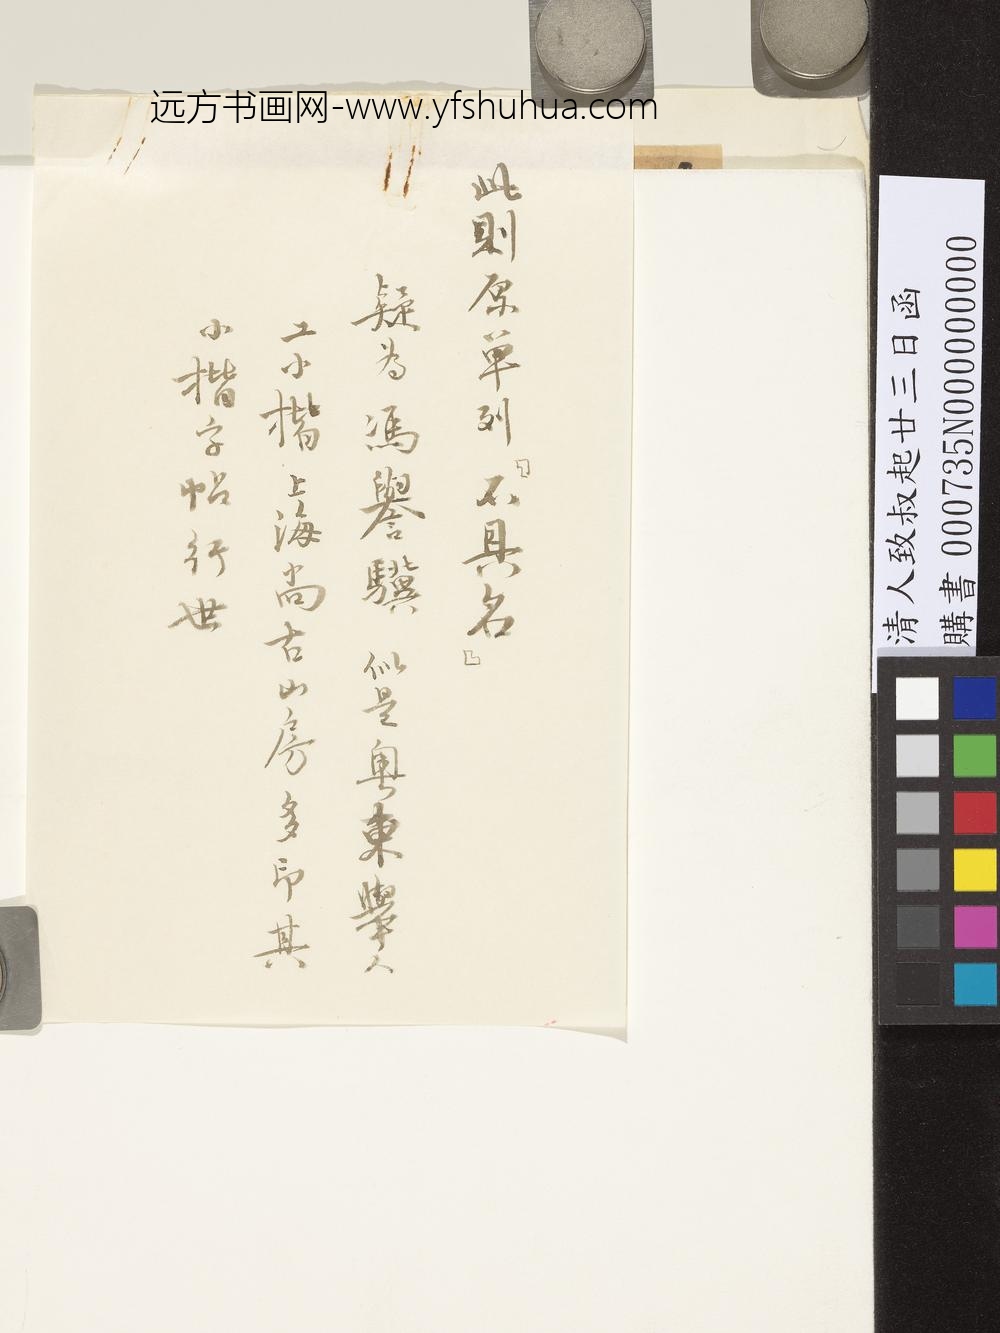 远方书画网-www.yfshuhua.com
此則原单列『不具名』
疑為馮譽驥 似是粤東舉人
工小楷 上海尚古山房多印其
小楷字帖行世
清人致叔起廿三日函
購書 000735N000000000